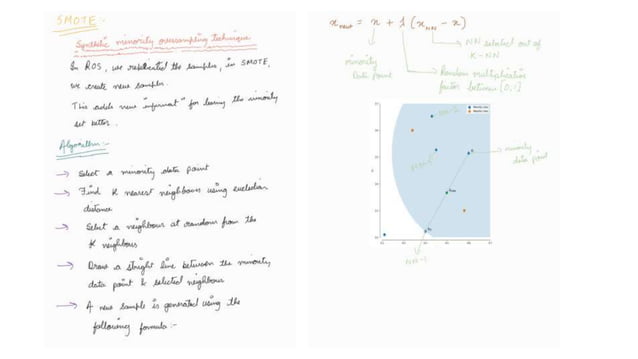 SMOTE :-
Synthetic minority oversampling technique
In ROS, we replicated the samples, in SMOTE,
we create new samples.
This adds new "informat" for learing the minority
set better.
Algorithm:-
→ Select a minority data point
→ Find K nearest neighbours using eucledian
distance
→ Select a neighbour at random from the
K neighbours
→ Draw a stright line between the minority
data point & selected neighbour
→ A new sample is generated using the
following formula:-
x new = x + λ (x NN - x)
NN selected out of
K-NN
minority
Data point
Random multiplication
factor between [0,1]
NN-2
NN-3
minority
data point
NN-1